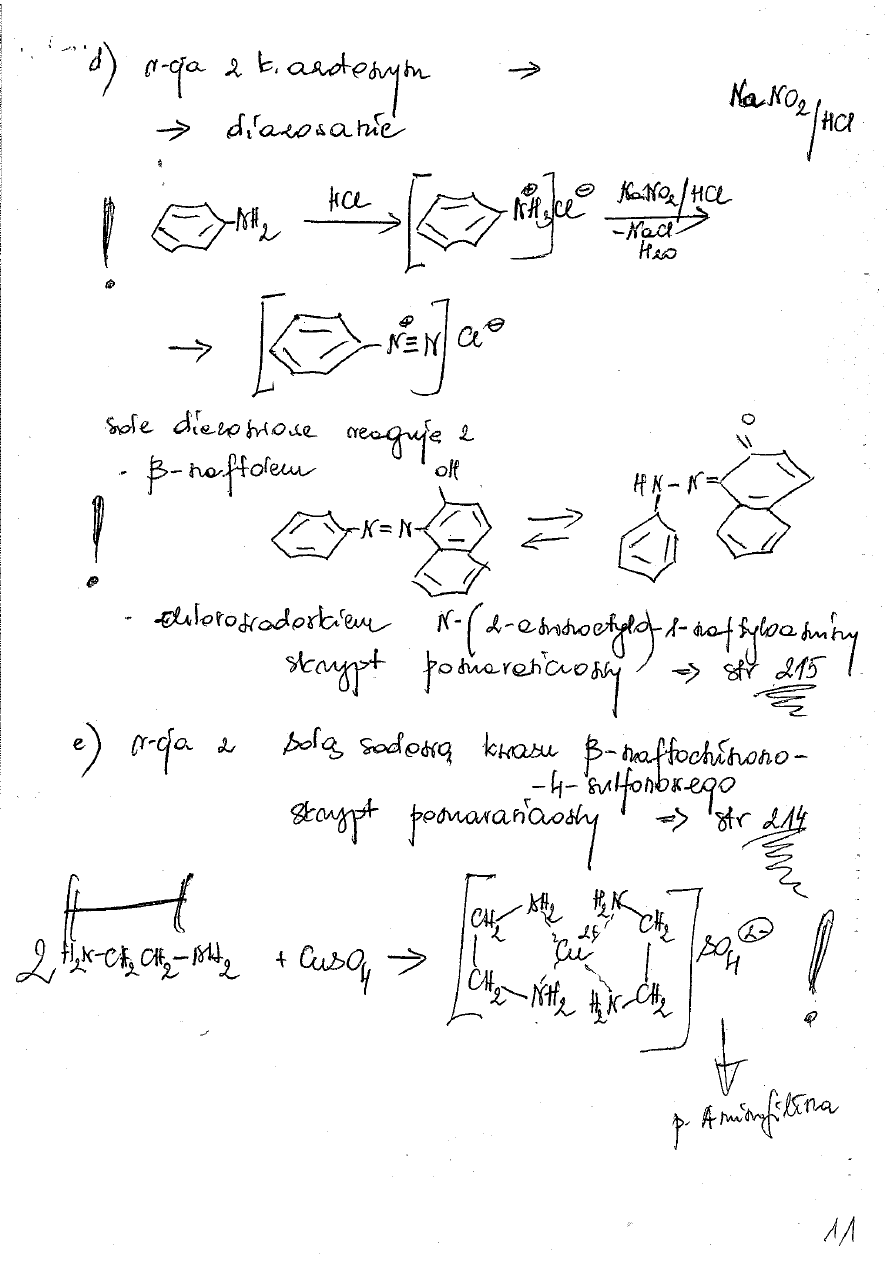 d) r-cja z k. azotowym →
NaNO2/HCl
→ diazowanie
! -NH2 HCl → [ -NH3⊕ ] Cl⊖ NaNO2/HCl →
-NaCl
H2O
→ [ -N⊕≡N ] Cl⊖
sole diazoniowe reagują z
- β-naftolem
OH
O
-N=N- ⇌ HN-N=
!
- chlorowodorkiem N-(2-aminoetylo)-1-naftyloaminy
skrypt pomarańczowy ⇒ str 215
e) r-cja z solą sodową kwasu β-naftochinono-
-4-sulfonowego
skrypt pomarańczowy ⇒ str 214
2 H2N-CH2CH2-NH2 + CuSO4 → [ CH2 NH2 H2N CH2 Cu2+ CH2 NH2 H2N CH2 ] SO4 2- !
p. Aminofilina
11